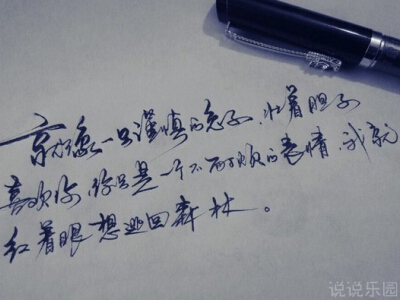 就像一只谨慎的兔子,壮着胆子
喜欢你,你只是一个不耐烦的表情,我就
红着眼想逃回森林。
说说乐园